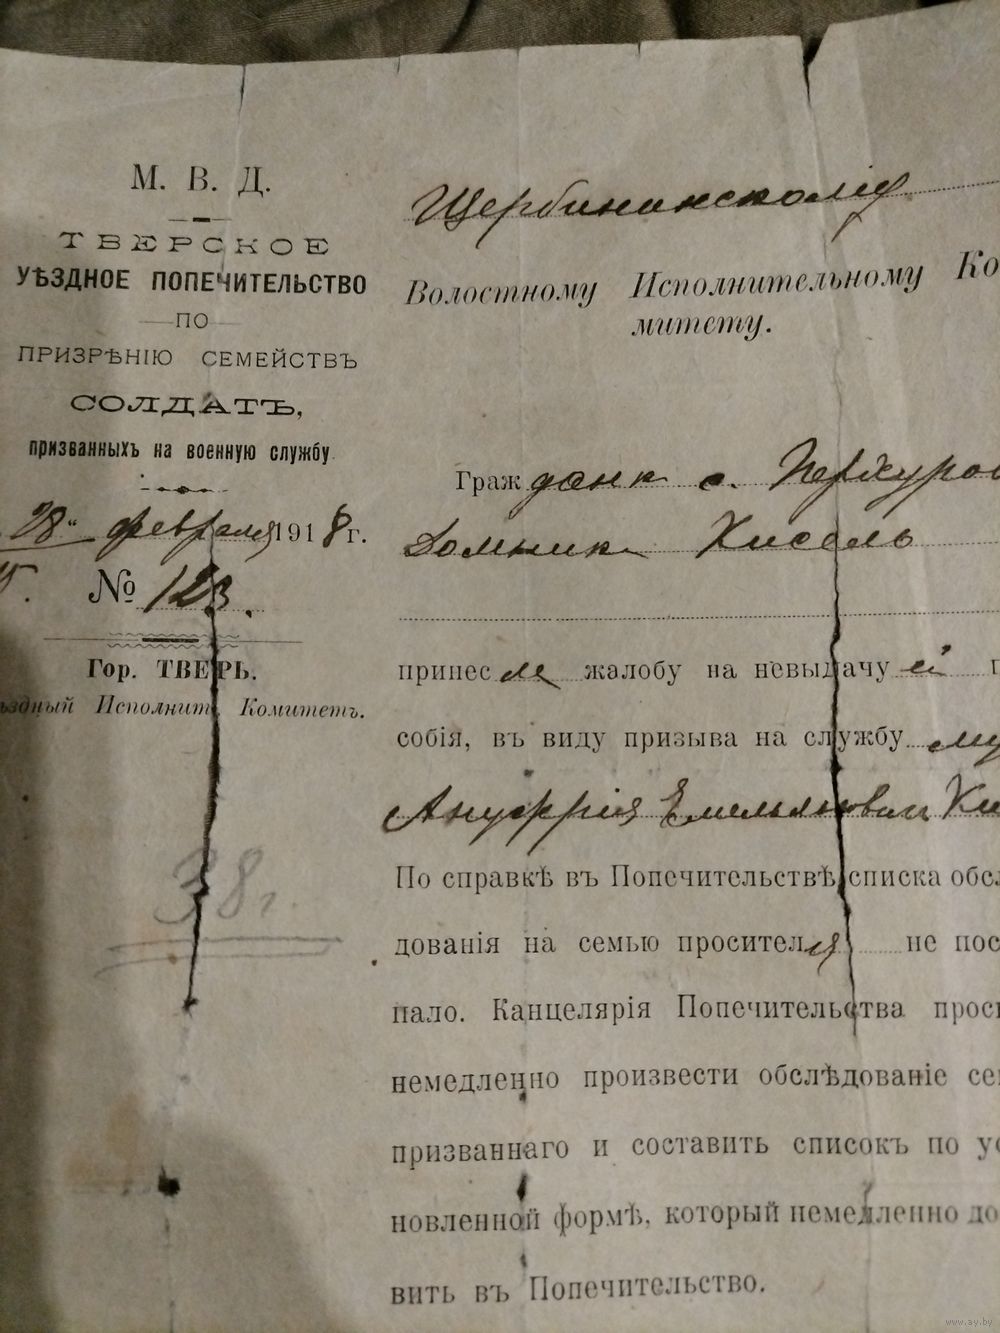 М. В. Д.
ТВЕРСКОЕ
УѢЗДНОЕ ПОПЕЧИТЕЛЬСТВО
ПО
ПРИЗРѢНІЮ СЕМЕЙСТВЪ
СОЛДАТЪ,
призванныхъ на военную службу
28 февраля 1918 г.
№ 123.
Гор. ТВЕРЬ.
ѣздный Исполнит. Комитетъ.
38 г.
Щербининскому
Волостному Исполнительному Ко
митету.
Гражданк с.
Домник Кисель
принесла жалобу на невыдачу ей п
собія, въ виду призыва на службу му
Ануфрія Емельянован Ки
По справкѣ въ Попечительствѣ списка обсл
дованія на семью просителя не пос
пало. Канцелярія Попечительства прос
немедленно произвести обслѣдованіе се
призваннаго и составить списокъ по ус
новленной формѣ, который немедленно до
вить въ Попечительство.
www.ay.by